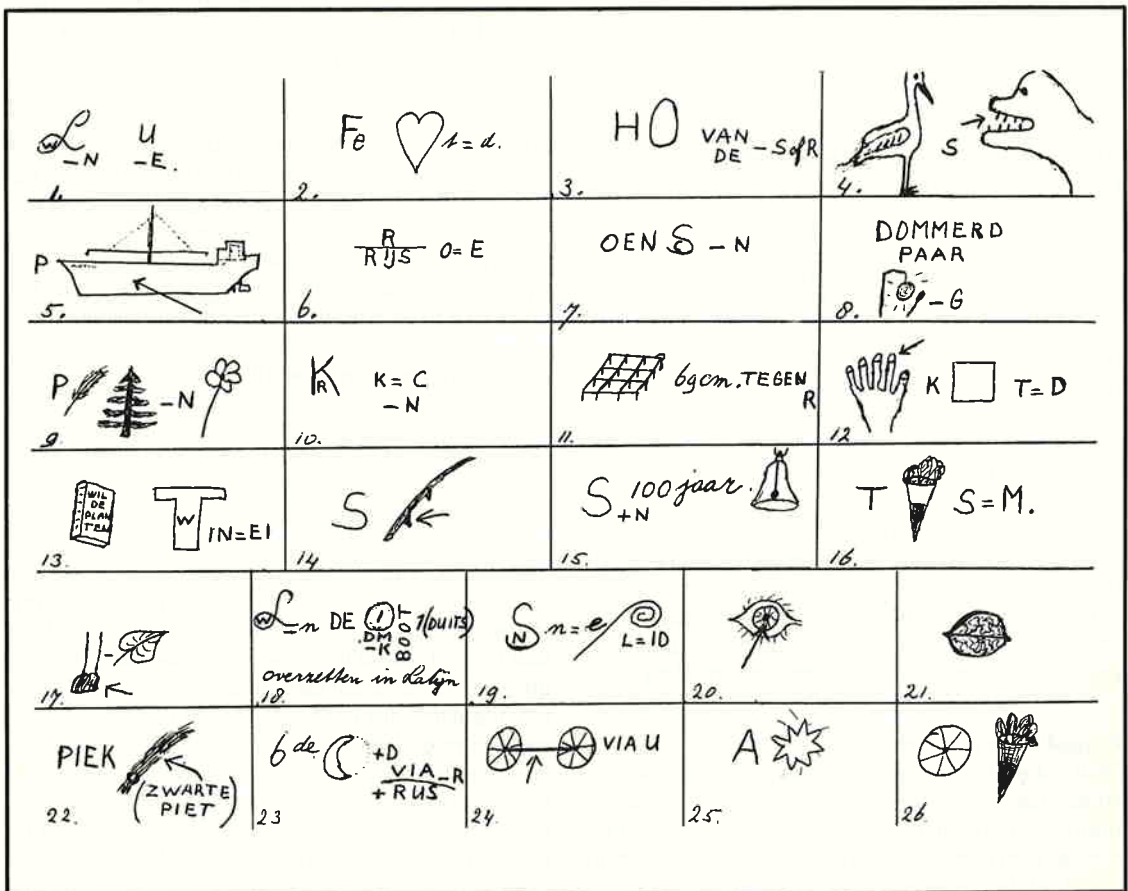 W L -N U -E.
1.
Fe t=d.
2.
HO VAN DE -S of R
3.
S
4.
P
5.
R
RIJS O=E
6.
OEN S O -N
7.
DOMMERD
PAAR
-G
8.
P -N
9.
K R K=C
-N
10.
6 9cm. TEGEN
R
11.
K T=D
12
WIL
DE
PLAN
TEN
T W IN=EI
13.
S
14
S +N 100 jaar.
15.
T S=M.
16.
-
17.
W L =n DE 1 BOOT 1 (DUITS)
.DM
-K
overzetten in Latijn
18.
S N n=e
L=ID
19.
20.
21.
PIEK
(ZWARTE
PIET)
22.
6 de +D
VIA -R
+RUS
23
VIA U
24.
A
25.
26.